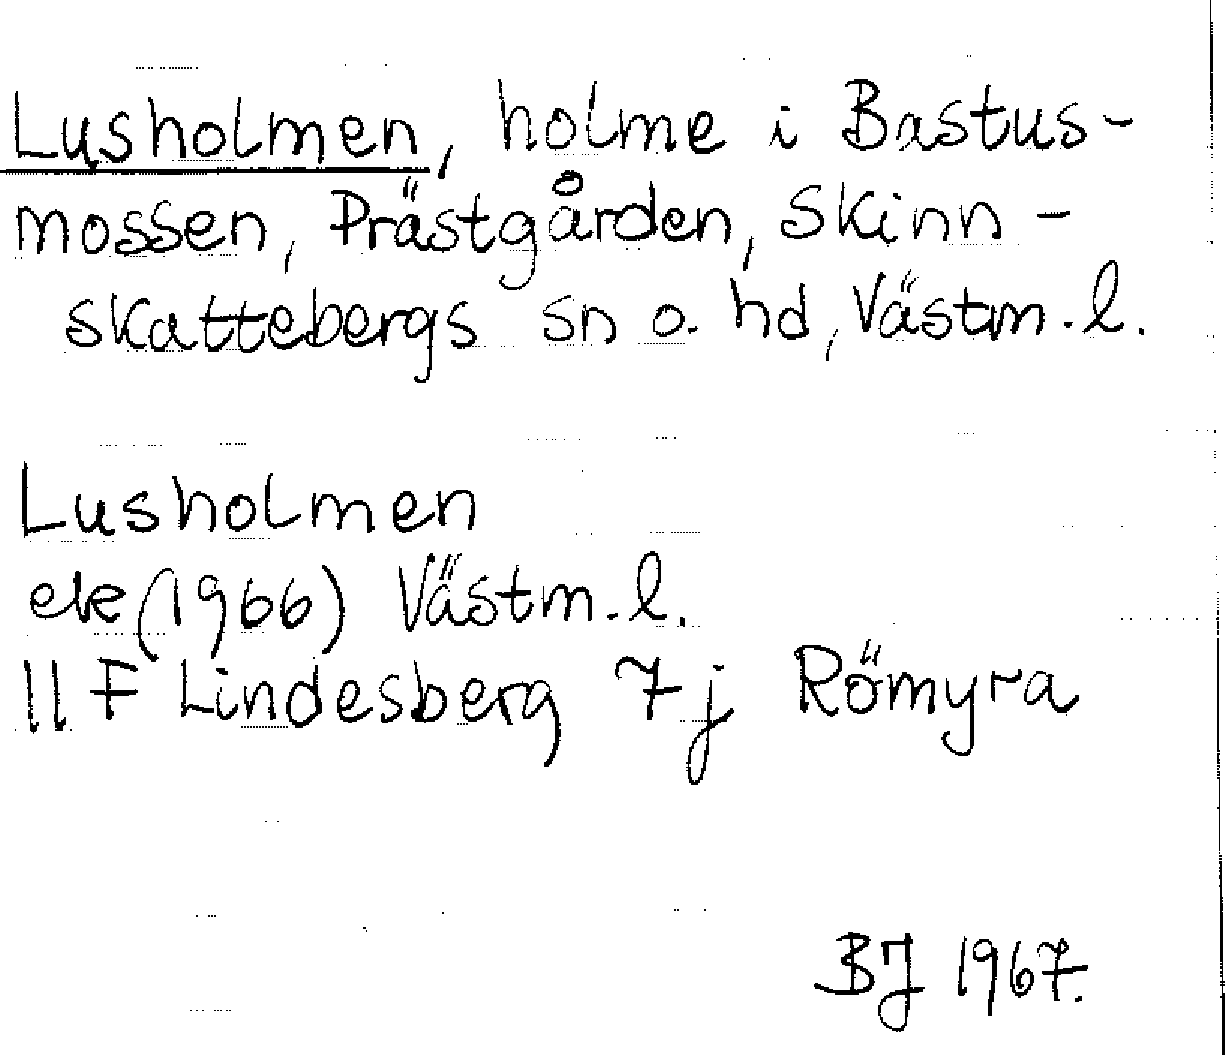 Lusholmen, holme i Bastus-
mossen, Prästgården, Skinn-
skattebergs sn o. hd, Västm. l.
Lusholmen
ek (1966) Västm. l.
11 F Lindesberg 7 j Römyra
BJ 1967.